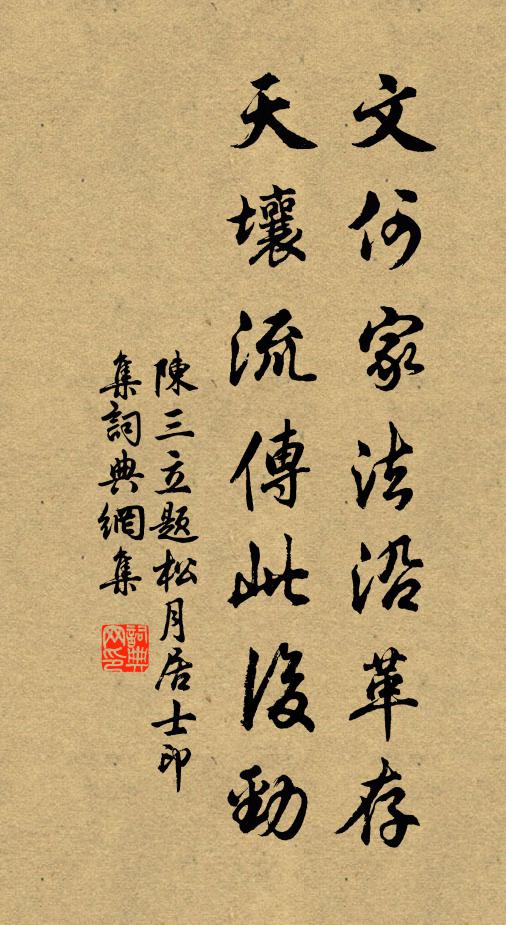 文何家法沿革存
天壤流傳此後勁
陳三立題松月居士印
集詞典網集
詞典网印